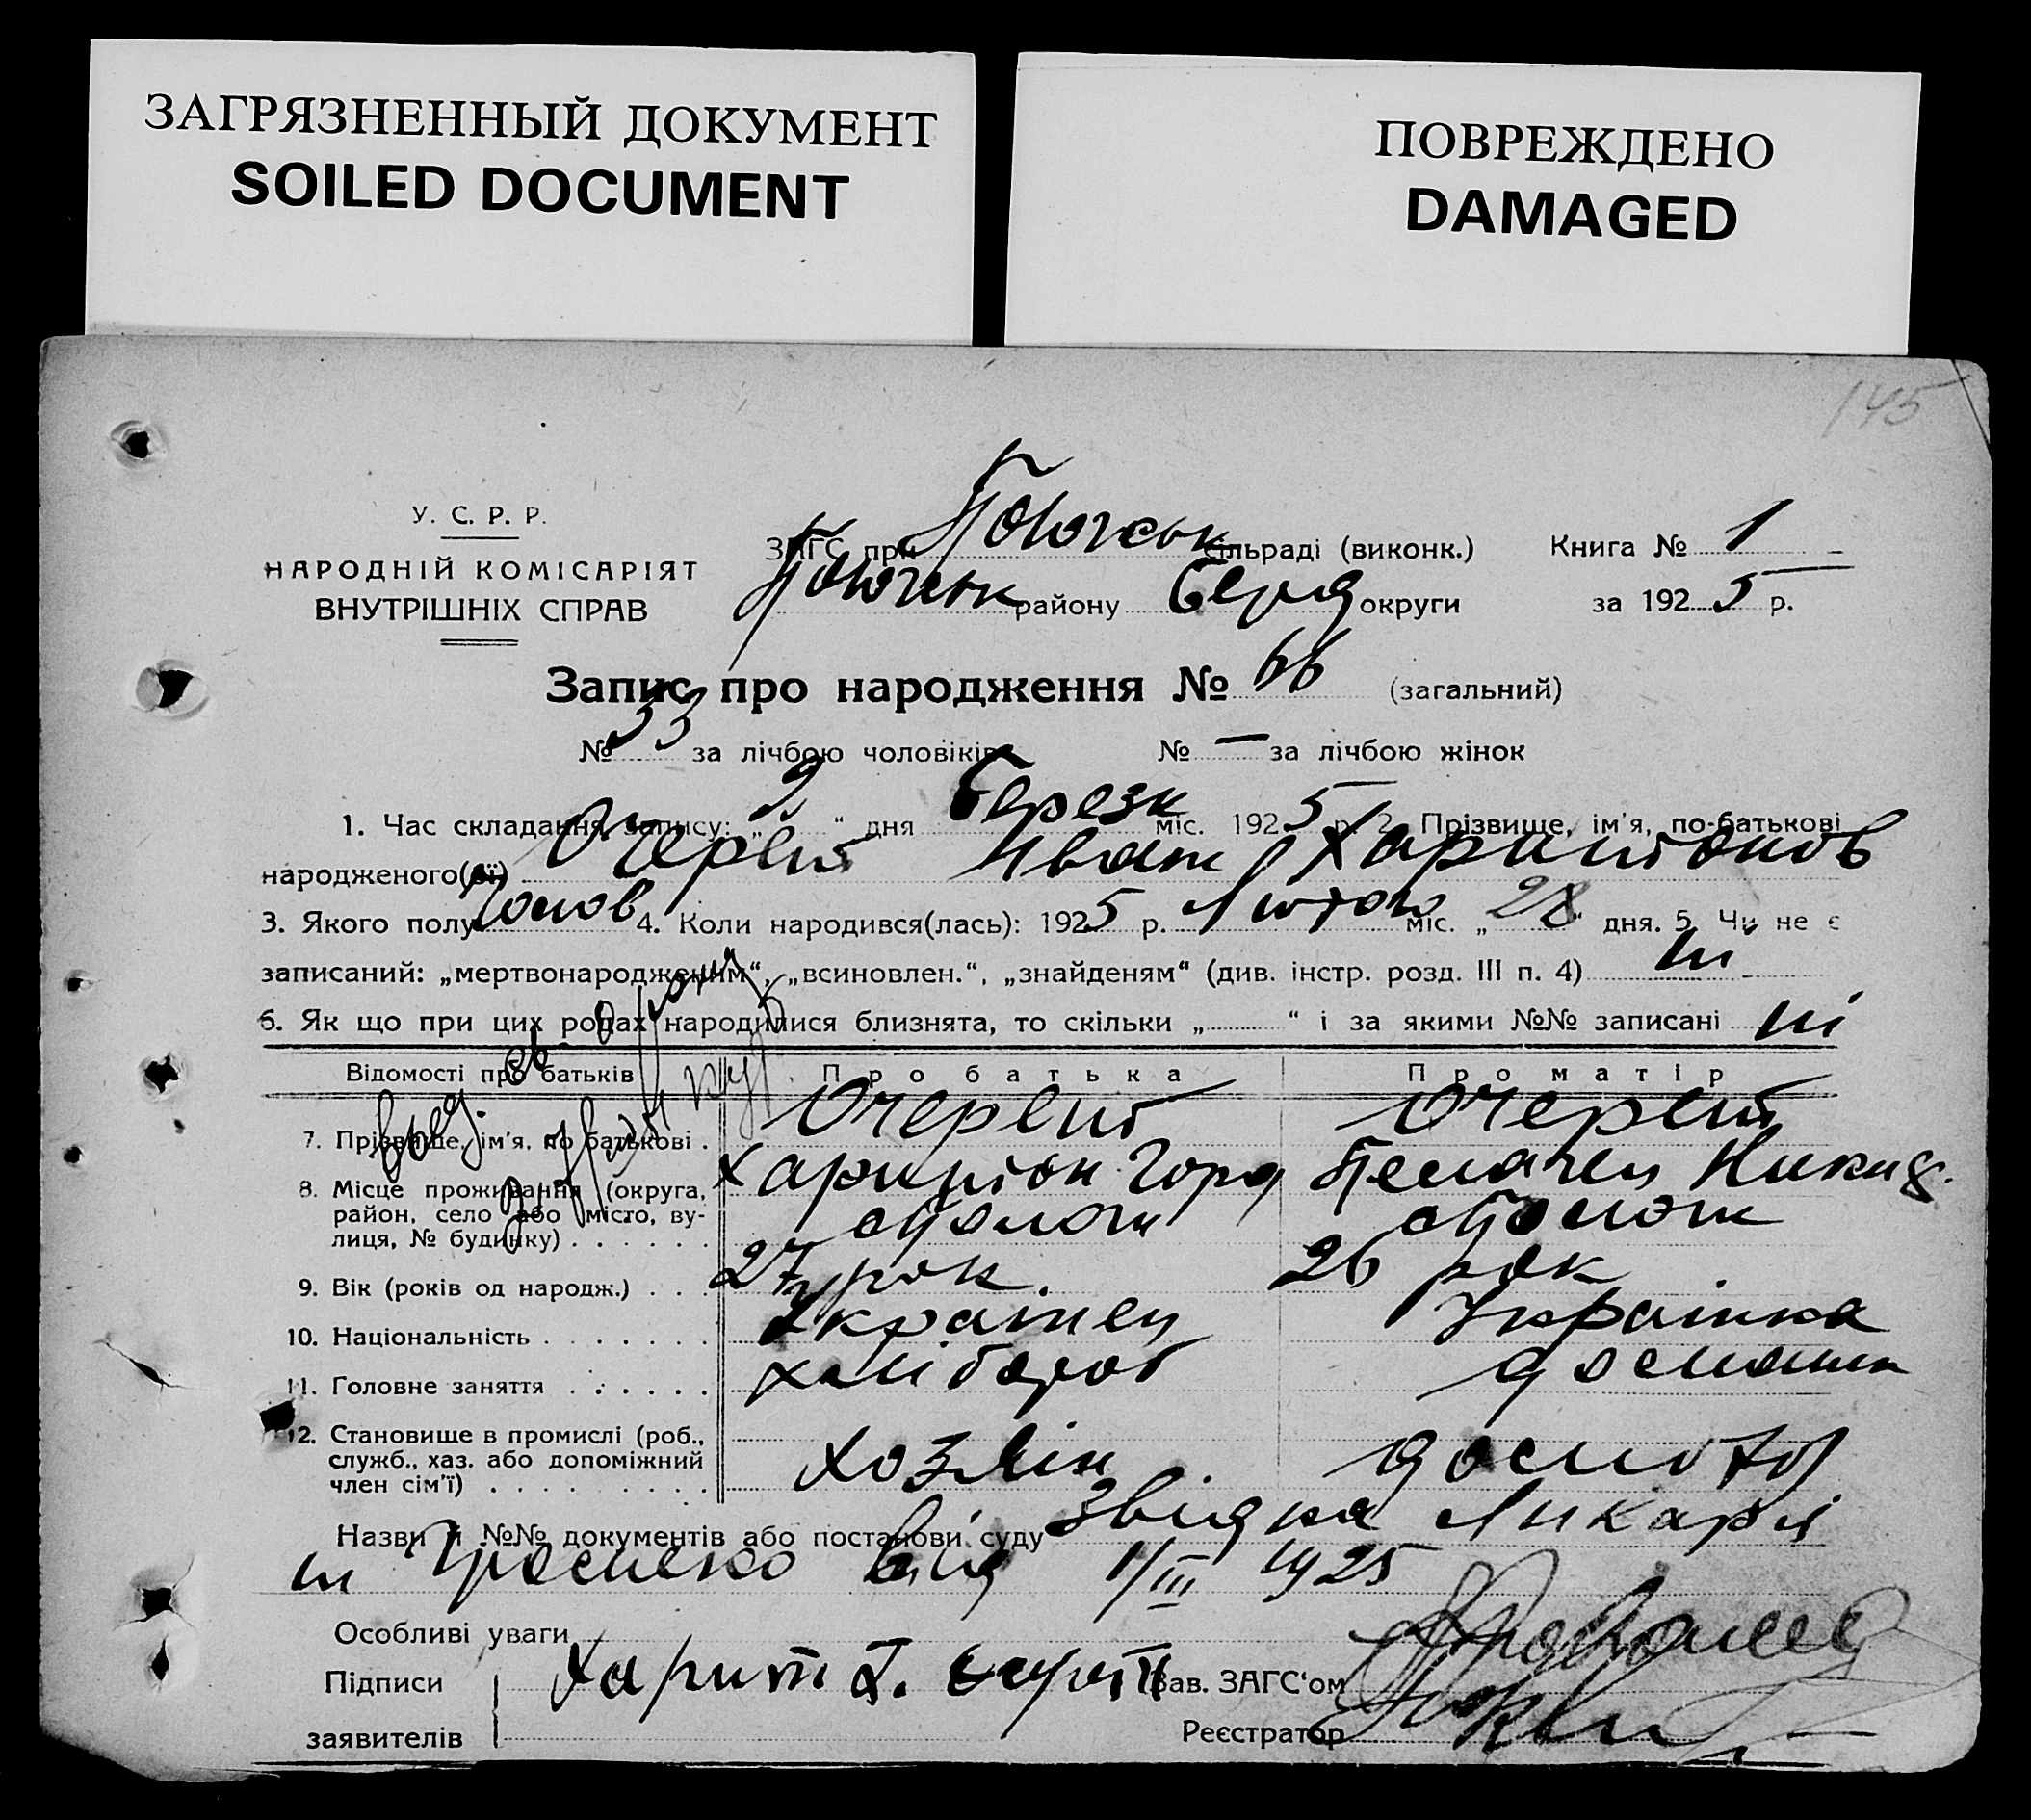 ЗАГРЯЗНЕННЫЙ ДОКУМЕНТ
SOILED DOCUMENT
ПОВРЕЖДЕНО
DAMAGED
145
У. С. Р. Р.
НАРОДНІЙ КОМІСАРІЯТ
ВНУТРІШНІХ СПРАВ
ЗАГС при сільраді (виконк.) Книга № 1
району округи за 1925 р.
Запис про народження № 66 (загальний)
№ 33 за лічбою чоловіків № — за лічбою жінок
1. Час складання запису: „ 2 “ дня Березн міс. 1925 р. 2. Прізвище, ім'я, по-батькові
народженого(ої) Очерет Иван Харитонов
3. Якого полу 4. Коли народився(лась): 1925 р. Лютого міс. „ 28 “ дня. 5. Чи не є
записаний: „мертвонародженим“, „всиновлен.“, „знайденям“ (див. інстр. розд. III п. 4) ні
6. Як що при цих родах народилися близнята, то скільки „ “ і за якими №№ записані ні
Відомості про батьків Про батька Про матір
7. Прізвище, ім'я, по батькові . Очерет Очерет
Харитон
8. Місце проживання (округа,
район, село або місто, ву-
лиця, № будинку) . . . . . .
9. Вік (років од народж.) . . . 27 рок. 26 рок
10. Національність . . . . . . Українец Українка
11. Головне заняття . . . . . . хлібороб домашн
12. Становище в промислі (роб.,
служб., хаз. або допоміжний
член сім'ї) . . . . . . . . . хозяін
Назви й №№ документів або постанови суду Звідка Ликаря
від 1/III 1925
Особливі уваги
Підписи Хариті Зав. ЗАГС'ом
заявителів Реєстратор